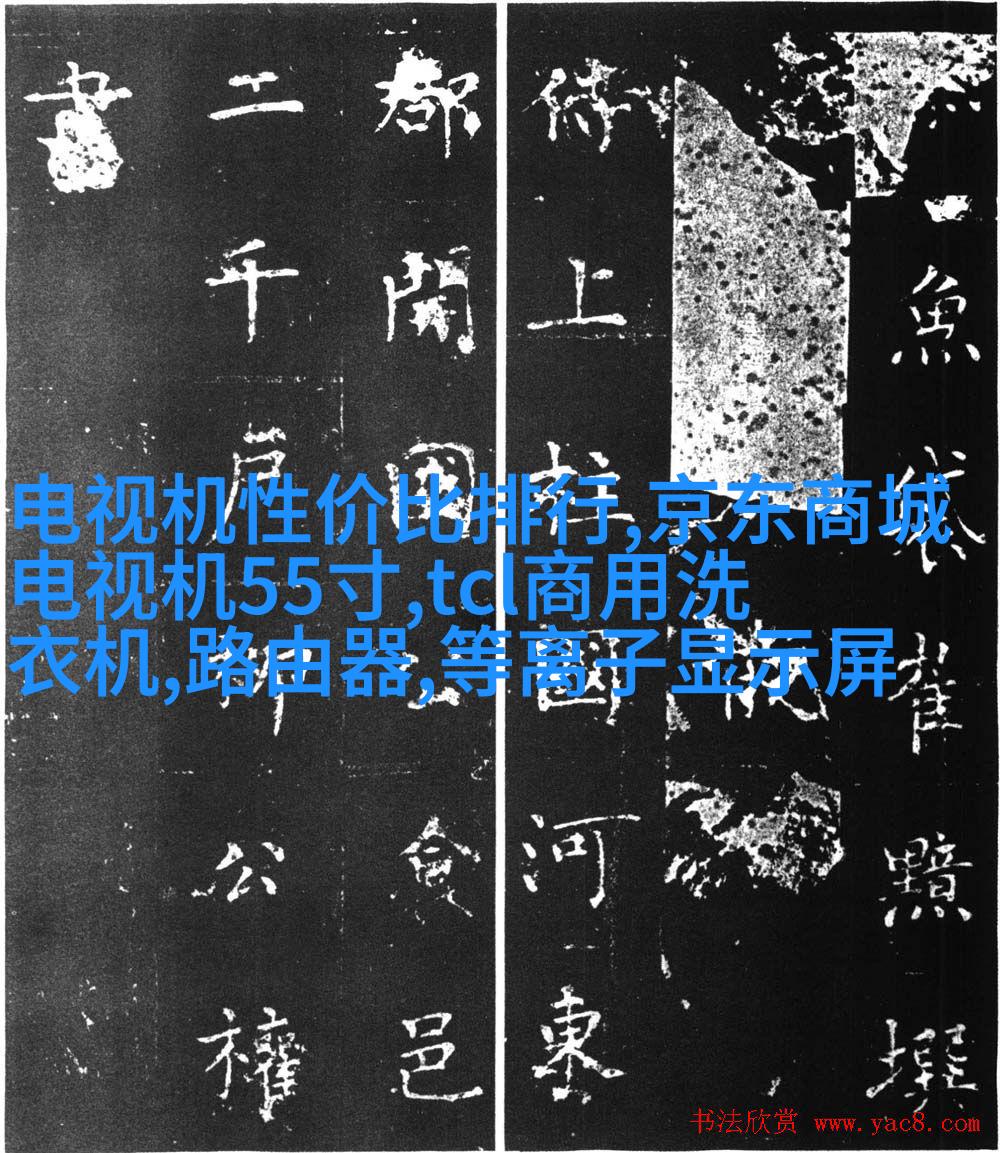 魚袋崔黯撰
侍上柱國河東
郡開國公食邑
二千戶柳公權
書
电视机性价比排行,京东商城
电视机55寸,tcl商用洗
衣机,路由器,等离子显示屏
书法欣赏 www.yac8.com